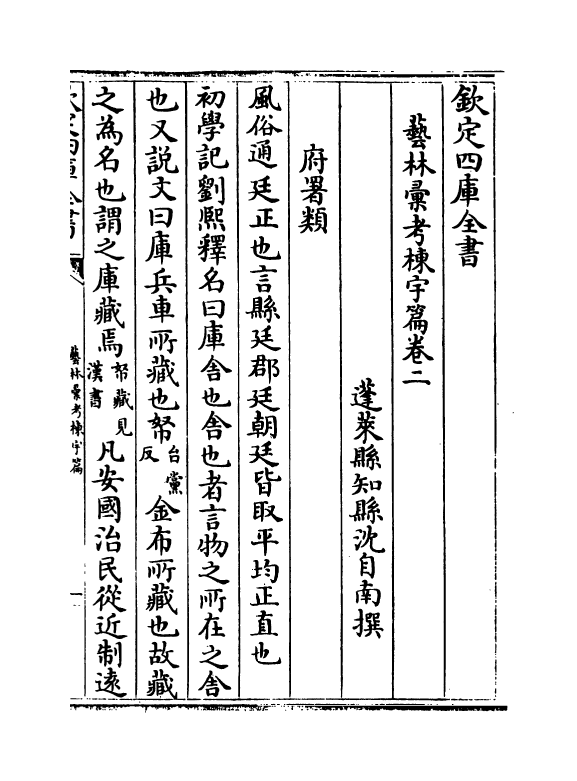 欽定四庫全書
藝林彙考棟宇篇卷二
蓬萊縣知縣沈自南撰
府署類
風俗通廷正也言縣廷郡廷朝廷皆取平均正直也
初學記劉熈釋名曰庫舍也舍也者言物之所在之舍
也又説文曰庫兵車所藏也帑台黨反金布所藏也故藏
之為名也謂之庫藏焉帑藏見漢書凡安國治民從近制逺
欽定四庫全書
藝林彙考棟宇篇
一